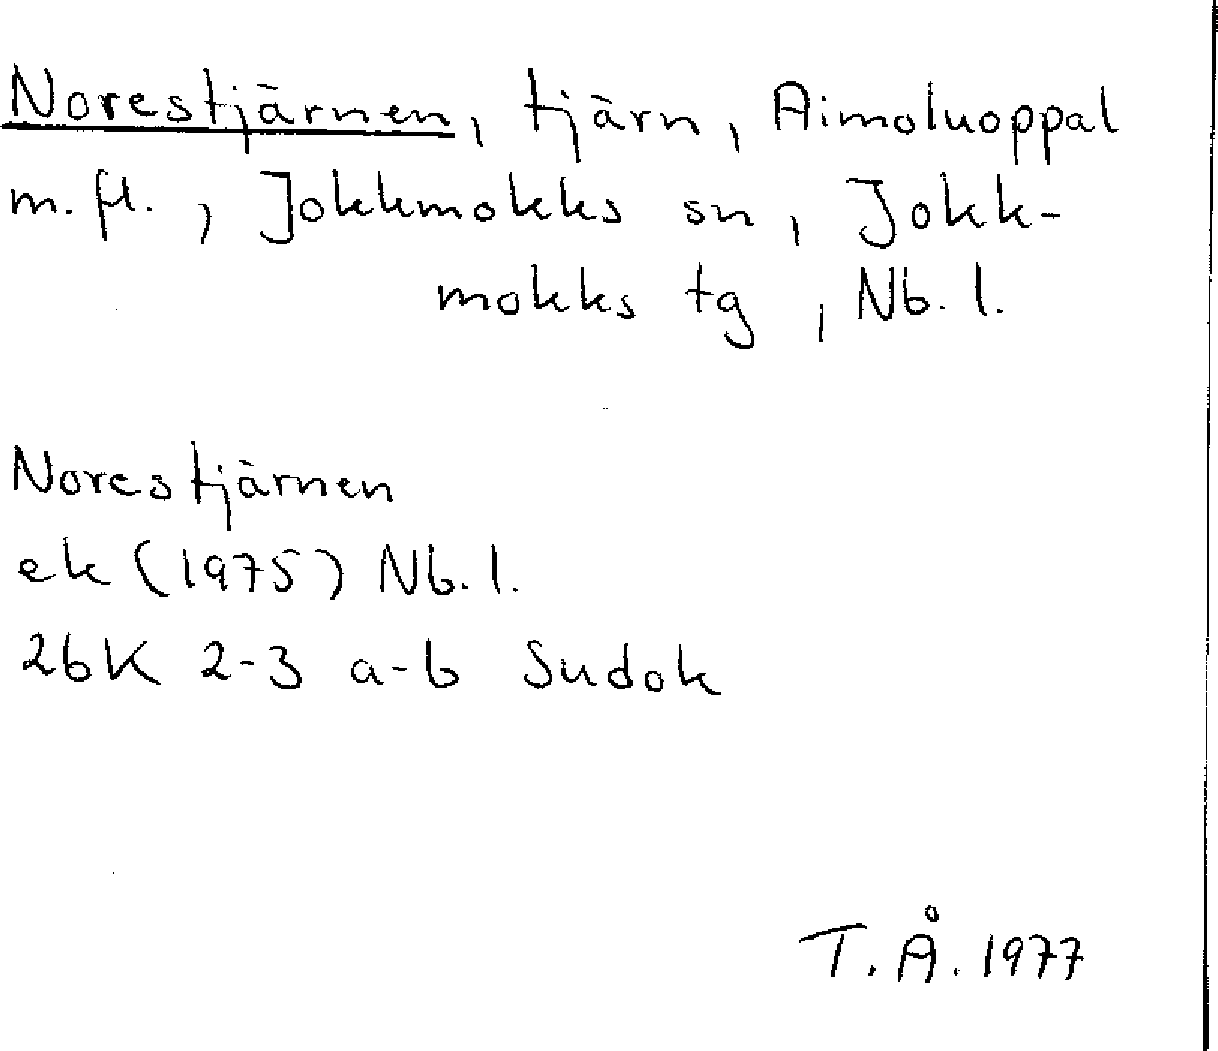 Norestjärnen, tjärn, Aimoluoppal
m. fl., Jokkmokks sn, Jokk-
mokks tg, Nb. l.
Norestjärnen
ek (1975) Nb. l.
26K 2-3 a-b Sudok
T. Å. 1977